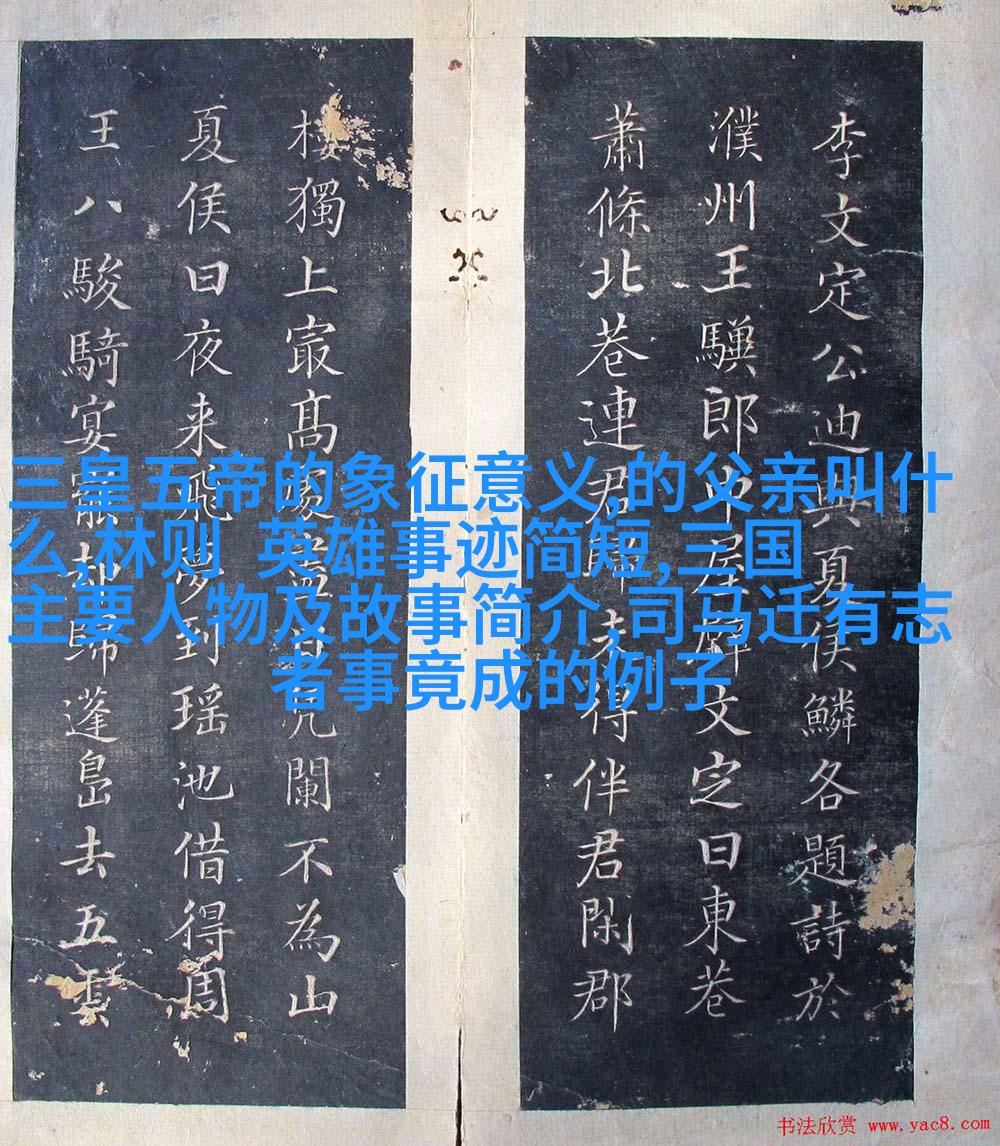 李文定公迪與夏侯鱗各題詩於
濮州王郎中居文定曰東巷
蕭條北巷連君未得伴君閑郡
樓獨上寂高見闌不為山
夏侯曰夜来飛夢到瑶池借得周
王八駿騎宴罷却歸蓬島去五雲
三皇五帝的象征意义,的父亲叫什
么,林则 英雄事迹简短,三国
主要人物及故事简介,司马迁有志
者事竟成的例子
书法欣赏 www.yac8.com